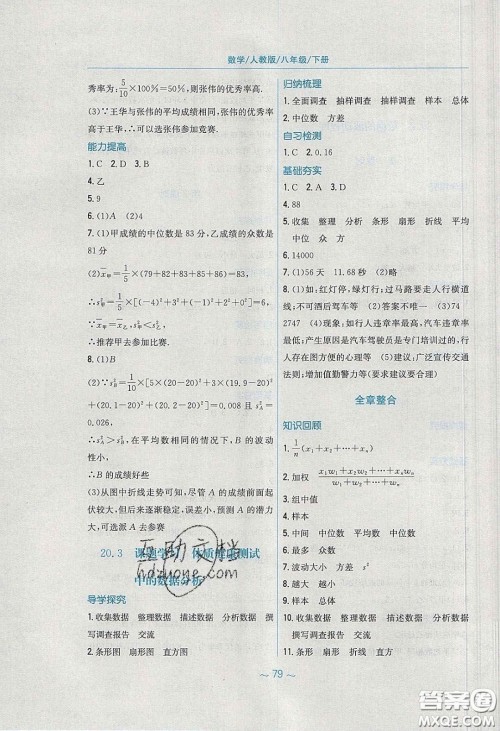 数学/人教版/八年级/下册
秀率为:5/10×100%=50%,则张伟的优秀率高.
(3)∵王华与张伟的平均成绩相同,张伟的优秀率
高于王华,∴可以选张伟参加竞赛.
能力提高
1. C 2. D 3. B
4. 乙
5. 9
6. (1)A (2)4
7. (1)甲成绩的中位数是 83 分,乙成绩的众数是
81 分
∴推荐甲去参加比赛.
8. (1)B
0.026,
∴在平均数相同的情况下,B 的波动
性小,
∴B 的成绩好些
(3)从图中折线走势可知,尽管 A 的成绩前面起伏
较大,但后来逐渐稳定,误差较小,预测 A 的潜力
大,可选派 A 去参赛
20.3 课题学习 体质健康测试
中的数据分析
导学探究
1. 收集数据 整理数据 描述数据 分析数据 撰
写调查报告 交流
2. 条形图 扇形图 直方图
归纳梳理
1. 全面调查 抽样调查 抽样调查 样本 总体
2. 中位数 方差
自习检测
1. C 2. 0.16
基础夯实
4. 88
5. 收集 整理 分析 条形 扇形 折线 平均
中位 众 方
6. 14000
7. (1)56 天 11.68 秒 (2)略
8. (1)如:红灯停,绿灯行;过马路要走人行横道
线;不可酒后驾车等 (2)答案不唯一 (3)74
2747 (4)现象:如行人违章率最高,汽车违章率最
低;产生原因是汽车驾驶员是专门培训过的,行
人存在图方便的心理等 (5)建议:广泛宣传交通
法规;增加值勤警力等(要求建议要合理)
全章整合
知识回顾
1. 1/n(x₁+x₂+…+xₙ)
2. 加权 (x₁w₁+x₂w₂+…+xₙwₙ)/(w₁+w₂+…+wₙ)
3. 组中值
4. 样本
5. 中间 中位数 平均数 中位数
6. 最多 众数
7. 波动大小 方差 s²
8. 越大 越小
9. 样本 总体
10. 收集数据 整理数据 描述数据 分析数据
撰写调查报告 交流
11. 条形 扇形 折线 直方
~ 79 ~
互助文档
hdzuone.com
答案圈
MXQE.COM